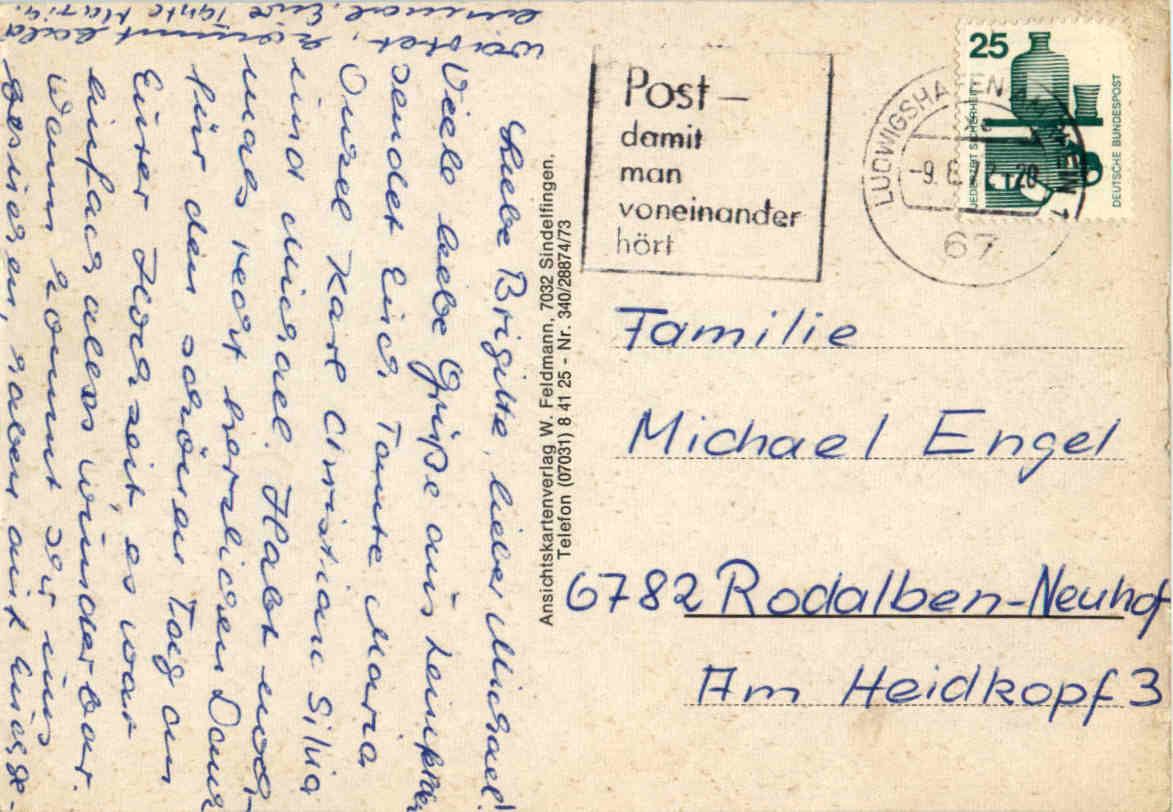 Liebe Brigitte, lieber Michael!
Viele liebe Grüße aus
sendet Euch Tante Maria
Onkel Karl Christian Silvia
und Michael. Habt noch-
mals recht herzlichen Dank
für den schönen Tag an
Eurer Hochzeit, es war
einfach alles wunderbar.
Wann kommt Ihr uns
besuchen, haben auf Euch ge-
wartet, kommt bald
einmal. Eure Tante Maria.
Ansichtskartenverlag W. Feldmann, 7032 Sindelfingen,
Telefon (07031) 8 41 25 - Nr. 340/28874/73
Post –
damit
man
voneinander
hört
LUDWIGSHAFEN AM RHEIN 1
67
25
JEDERZEIT SICHERHEIT
DEUTSCHE BUNDESPOST
Familie
Michael Engel
6782 Rodalben-Neuhof
Am Heidkopf 3